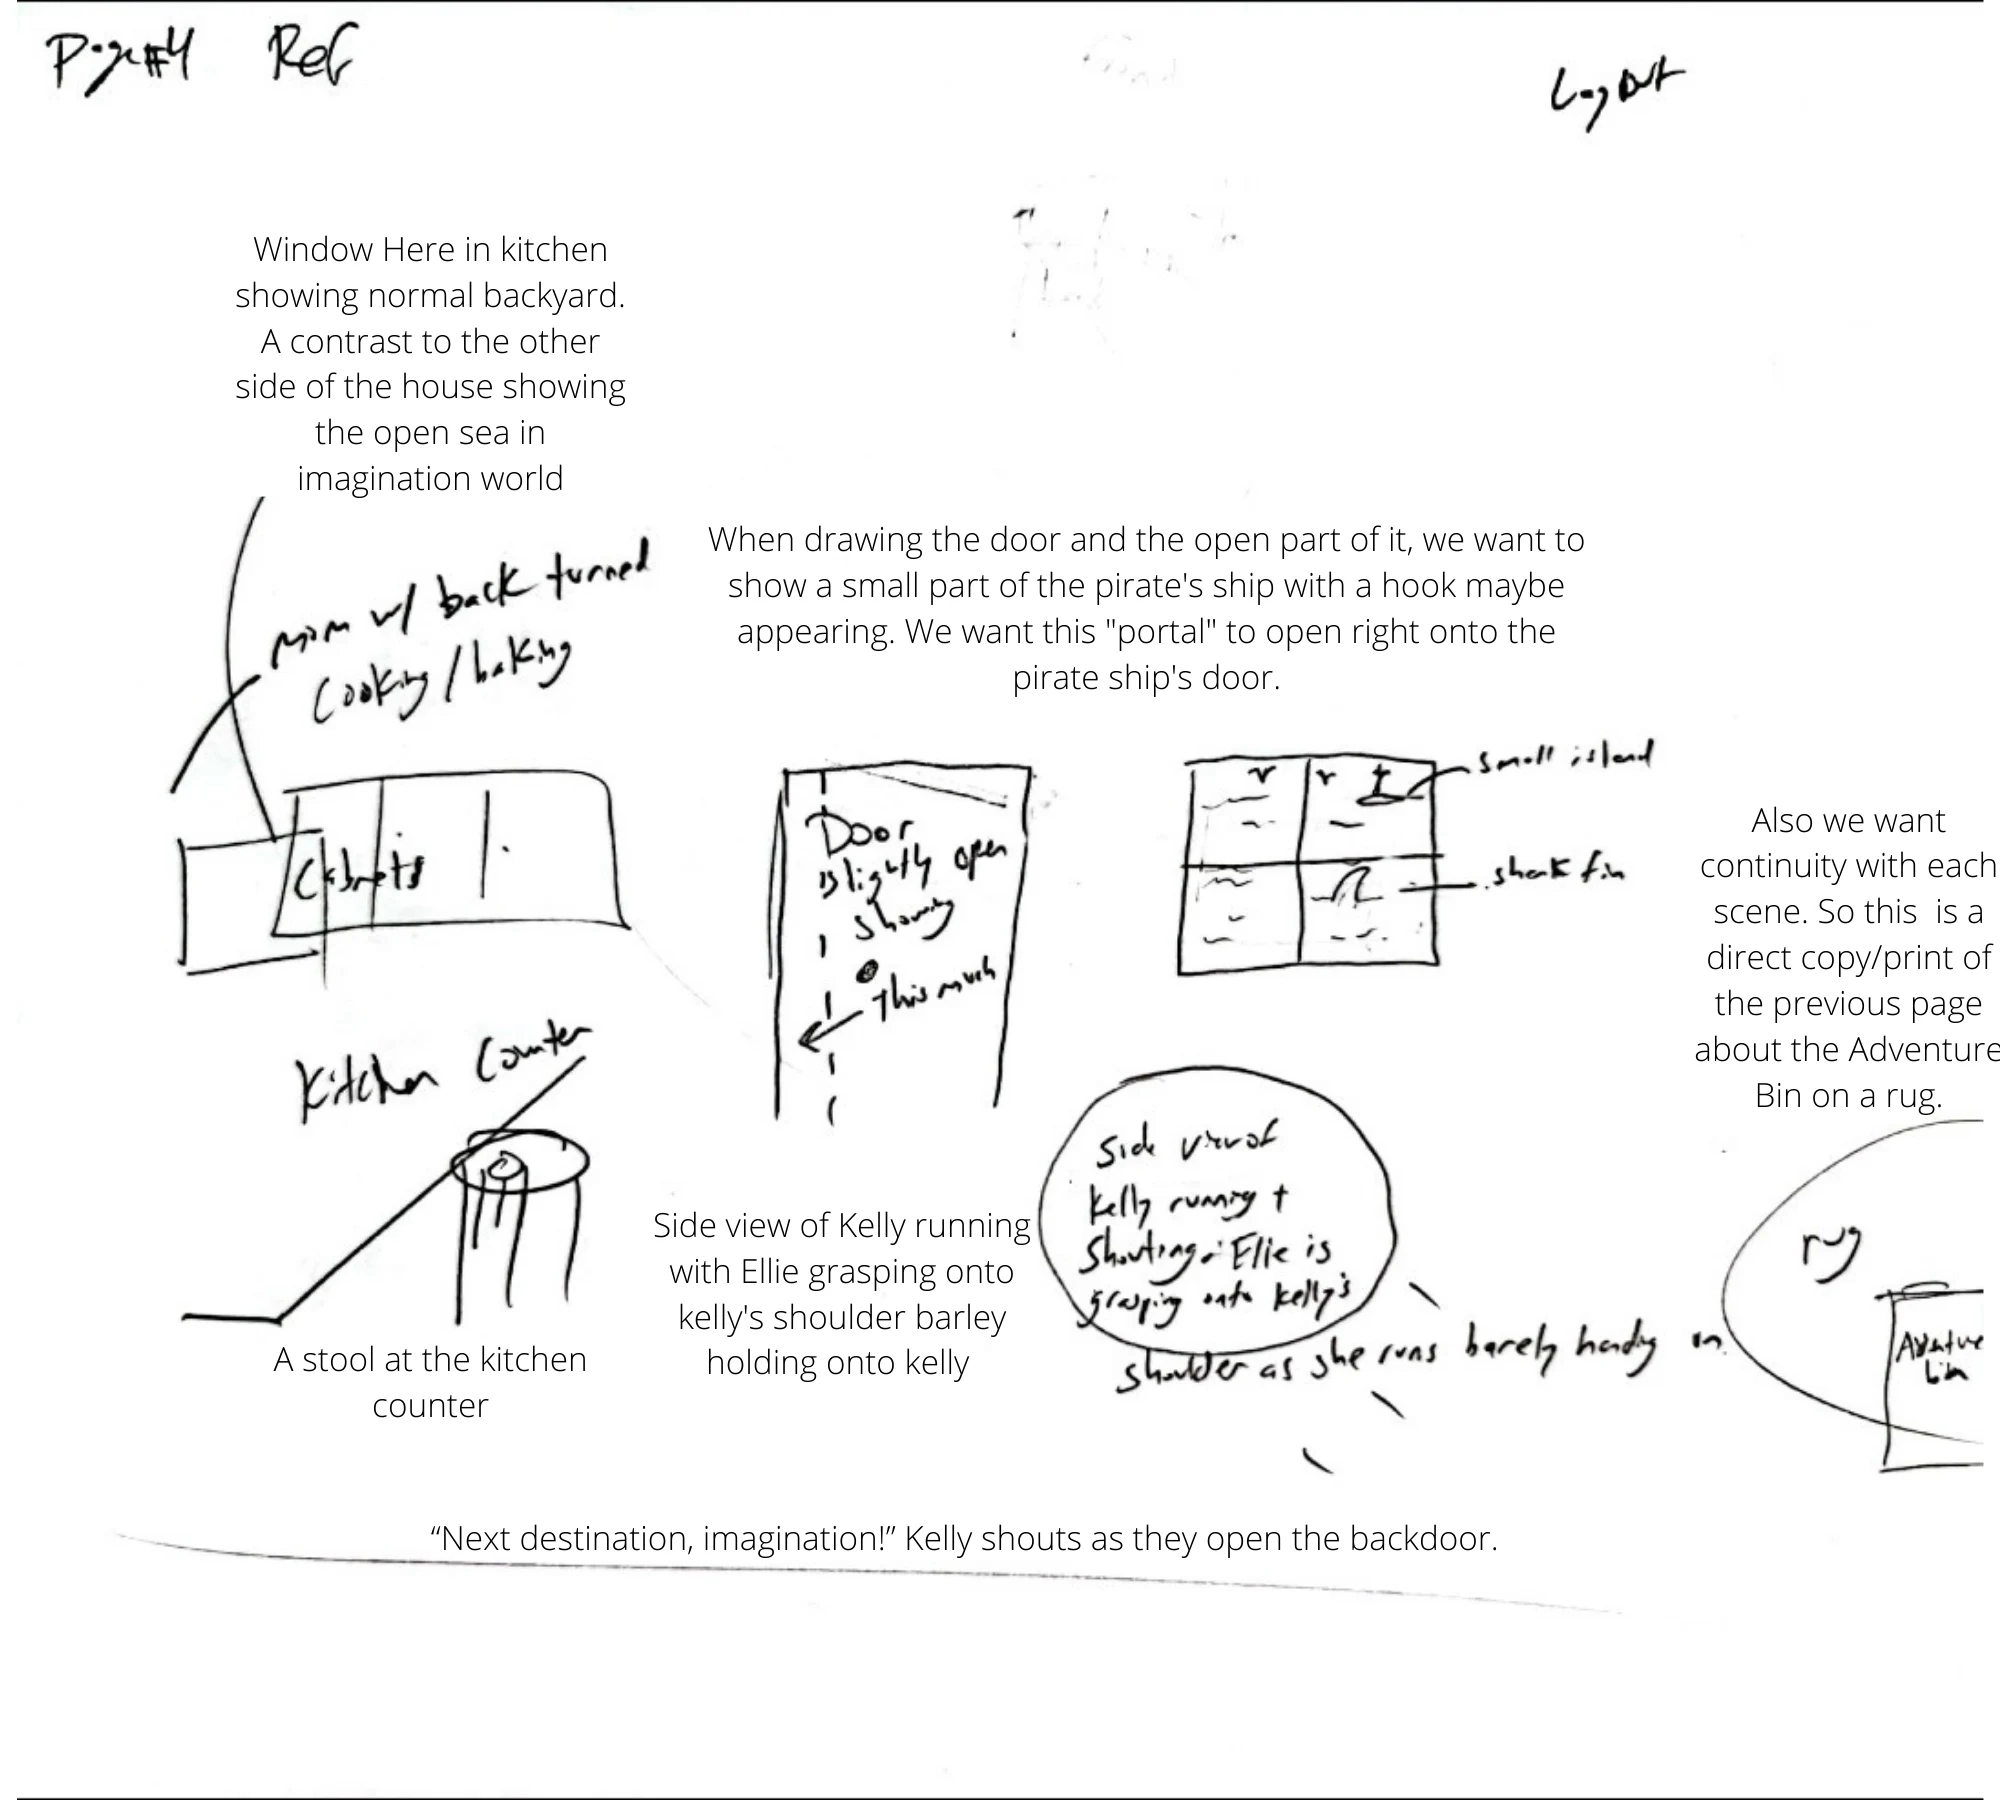 Page #4 Ref
Layout
Window Here in kitchen
showing normal backyard.
A contrast to the other
side of the house showing
the open sea in
imagination world
mom w/ back turned
Cooking / baking
When drawing the door and the open part of it, we want to
show a small part of the pirate's ship with a hook maybe
appearing. We want this "portal" to open right onto the
pirate ship's door.
Cabnets
Door
slightly open
showing
this much
small island
shark fin
Also we want
continuity with each
scene. So this  is a
direct copy/print of
the previous page
about the Adventure
Bin on a rug.
Kitchen Counter
A stool at the kitchen
counter
Side view of Kelly running
with Ellie grasping onto
kelly's shoulder barley
holding onto kelly
Side view of
Kelly running +
Shouting. Ellie is
grasping onto Kelly's
shoulder as she runs barely on
rug
Adventure
bin
“Next destination, imagination!” Kelly shouts as they open the backdoor.